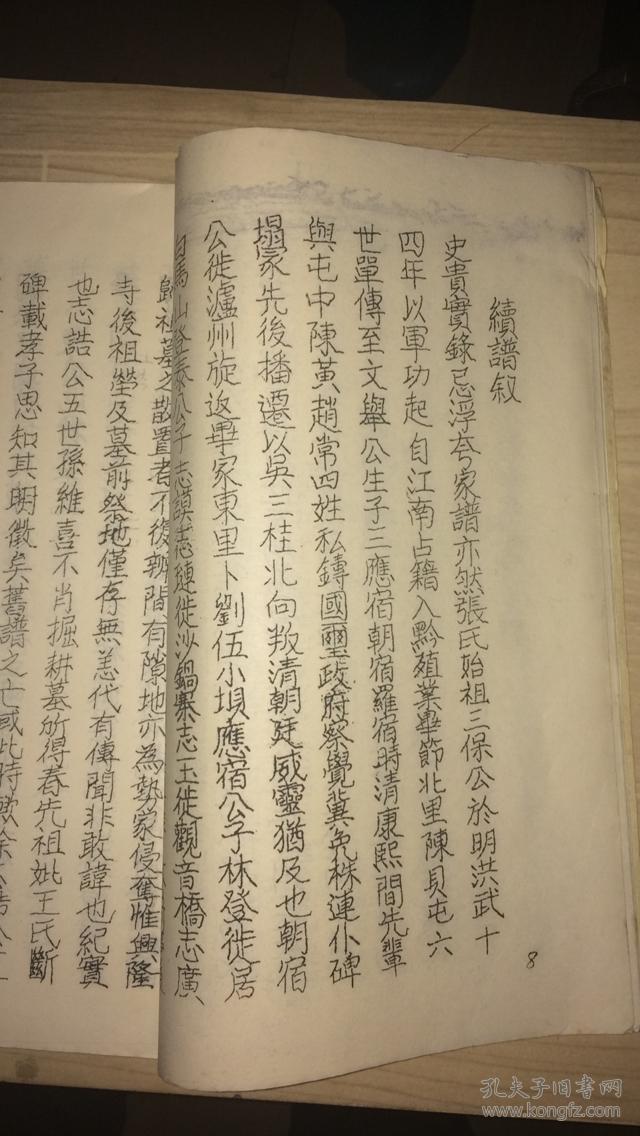 續譜敘
史貴實錄忌浮夸家譜亦然張氏始祖三保公於明洪武十
四年以軍功起自江南占籍入黔殖業畢節北里陳貝屯六
世單傳至文舉公生子三應宿朝宿羅宿時清康熙間先輩
與屯中陳黃趙常四姓私鑄國璽政府察覺冀免株連仆碑
塌冢先後播遷以吳三桂北向叛清朝廷威靈猶及也朝宿
公徙瀘州旋返畢家東里卜劉伍小垻應宿公子林登徙居
白馬山登泰公子志謨志縺徙沙鍋寨志玉徙觀音橋志廣
歸祖墓之散置者不復辨間有隙地亦為勢家侵奪惟興隆
寺後祖塋及墓前祭地僅存無恙代有傳聞非敢諱也紀實
也志誥公五世孫維喜不肖掘耕墓所得春先祖妣王氏斷
碑載孝子思知其明徵矣舊譜之亡或此時歟
8
孔夫子旧书网
www.kongfz.com